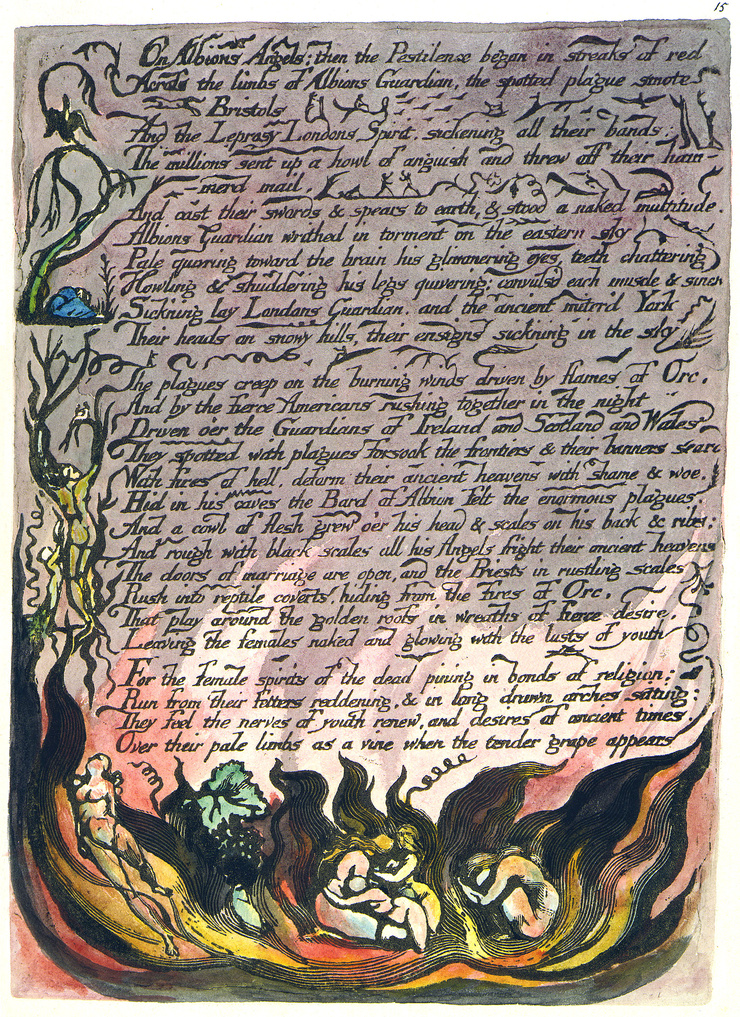 15
On Albions Angels; then the Pestilence began in streaks of red
Across the limbs of Albions Guardian, the spotted plague smote
Bristols
And the Leprosy Londons Spirit, sickening all their bands:
The millions sent up a howl of anguish and threw off their ham-
-merd mail,
And cast their swords & spears to earth, & stood a naked multitude.
Albions Guardian writhed in torment on the eastern sky
Pale quivring toward the brain his glimmering eyes, teeth chattering
Howling & shuddering his legs quivering; convuls'd each muscle & sinew
Sickning lay Londons Guardian, and the ancient miter'd York
Their heads on snowy hills, their ensigns sickning in the sky
The plagues creep on the burning winds driven by flames of Orc,
And by the fierce Americans rushing together in the night
Driven o'er the Guardians of Ireland and Scotland and Wales
They spotted with plagues forsook the frontiers & their banners seard
With fires of hell, deform their ancient heavens with shame & woe.
Hid in his caves the Bard of Albion felt the enormous plagues
And a cowl of flesh grew o'er his head & scales on his back & ribs;
And rough with black scales all his Angels fright their ancient heavens
The doors of marriage are open, and the Priests in rustling scales
Rush into reptile coverts, hiding from the fires of Orc,
That play around the golden roofs in wreaths of fierce desire,
Leaving the females naked and glowing with the lusts of youth
For the female spirits of the dead pining in bonds of religion;
Run from their fetters reddening, & in long drawn arches sitting:
They feel the nerves of youth renew, and desires of ancient times,
Over their pale limbs as a vine when the tender grape appears